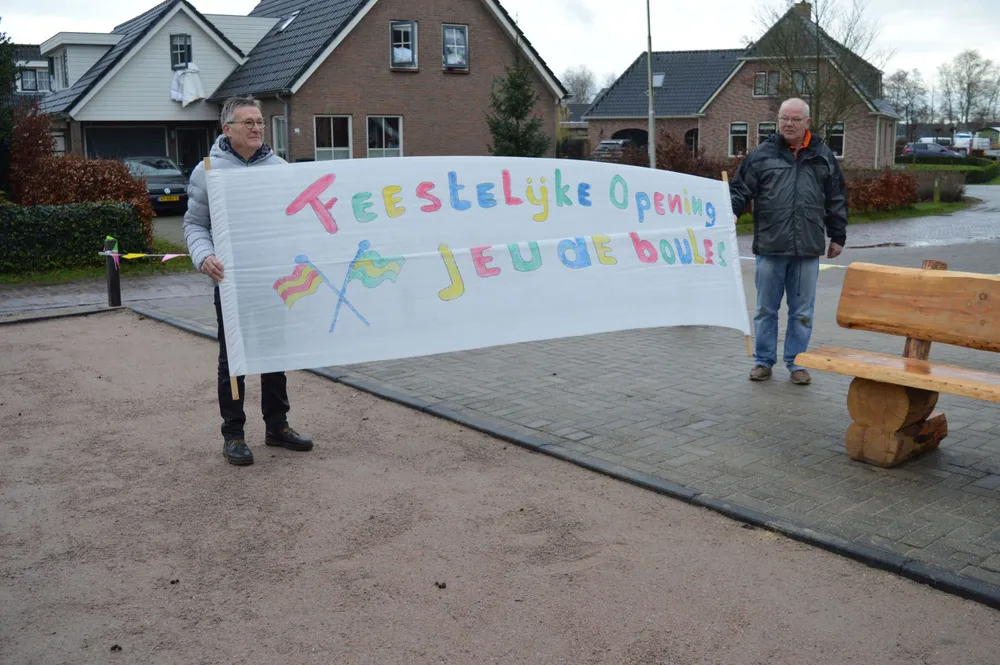 Feestelijke Opening
Jeu de boules